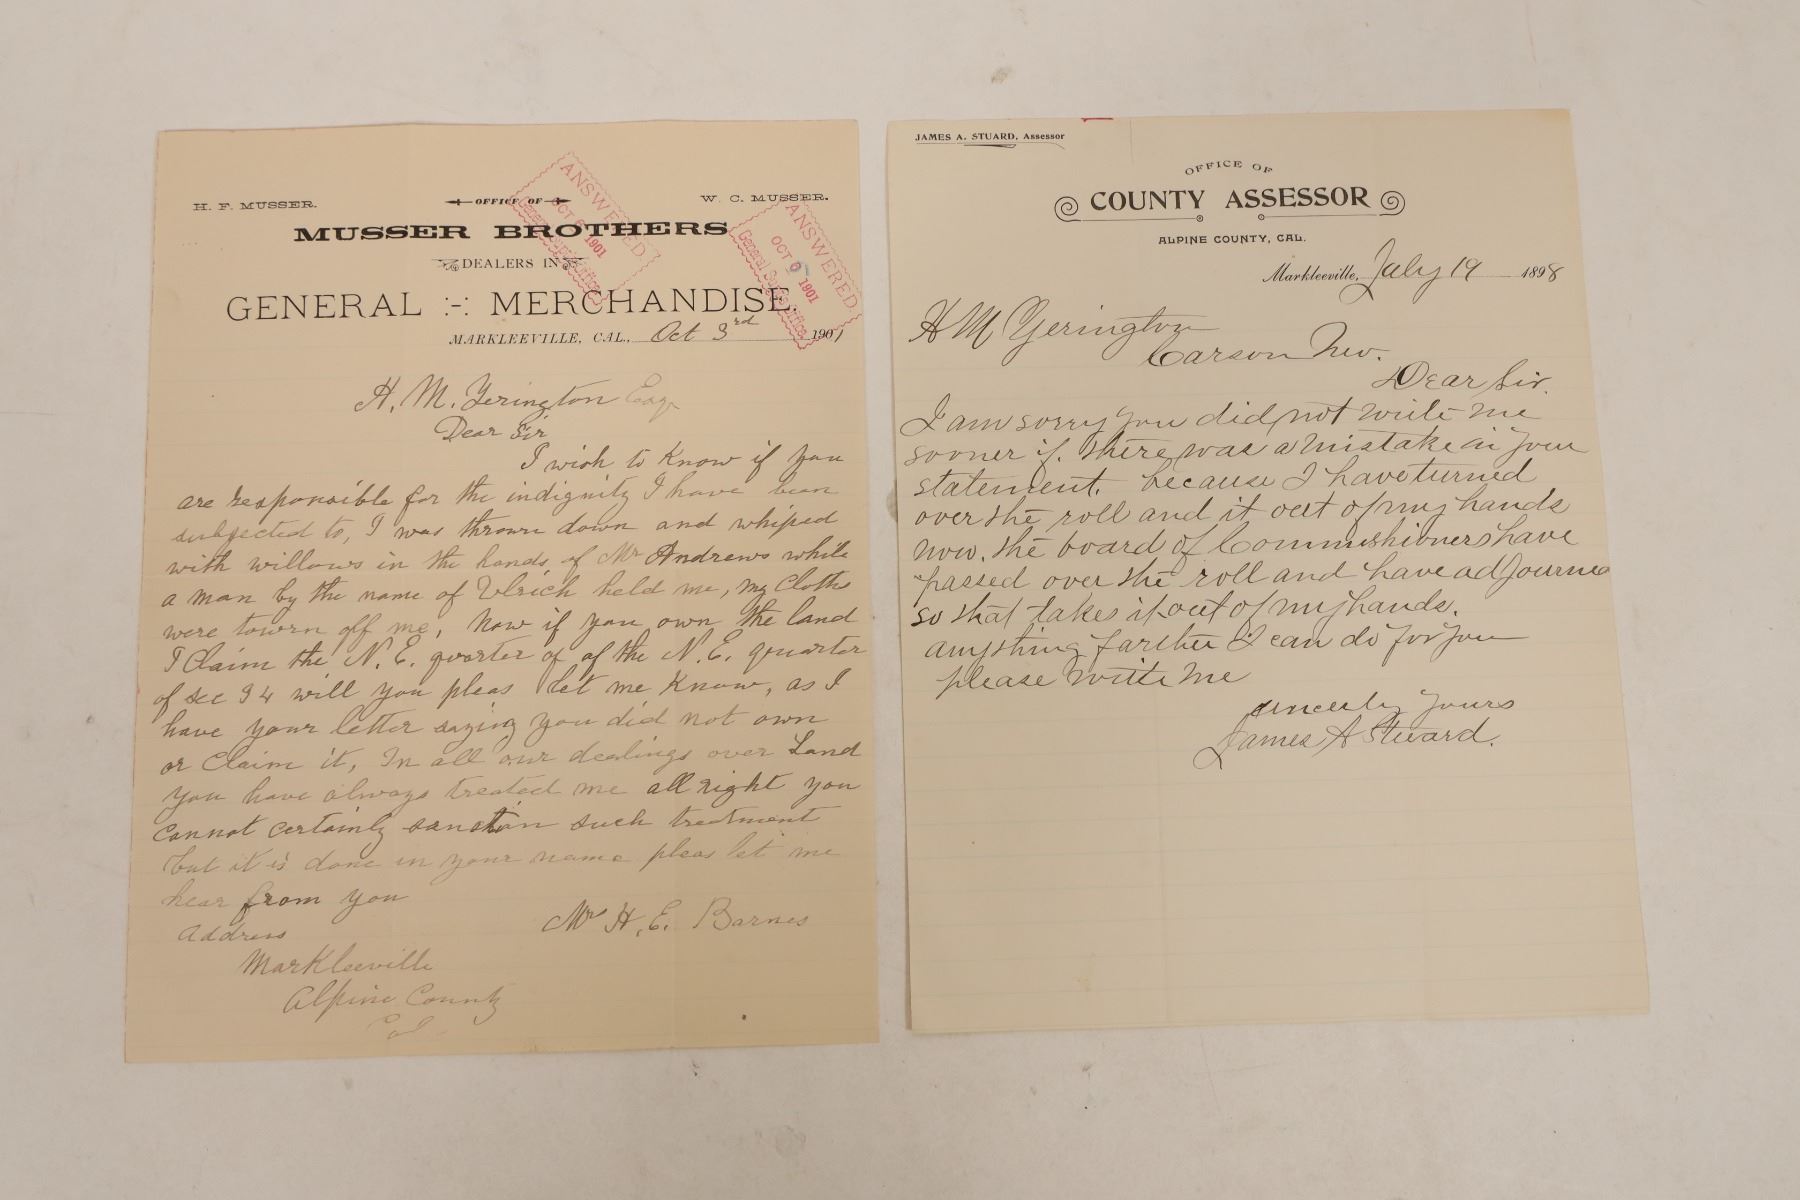 H. F. MUSSER.
OFFICE OF
W. C. MUSSER.
MUSSER BROTHERS
DEALERS IN
GENERAL :-: MERCHANDISE.
MARKLEEVILLE, CAL., Oct 3rd 1901
ANSWERED
OCT 6 1901
General Supt's Office
ANSWERED
OCT 6 1901
General Supt's Office
H. M. Yerington Esqr
Dear Sir
I wish to Know if you
are responsible for the indignity I have been
subjected to, I was thrown down and whiped
with willows in the hands of Mr Andrews while
a man by the name of Ulrich held me, my Cloths
were towrn off me, Now if you own the land
I Claim the N. E. quorter of of the N. E. quarter
of sec 34 will you pleas let me Know, as I
have your letter saying you did not own
or Claim it, In all our dealings over Land
you have always treated me all right you
Connot certainly sanction such treatment
but it is done in your name pleas let me
hear from you
Mrs H. E. Barnes
Address
Markleeville
Alpine County
Cal
JAMES A. STUARD, Assessor
OFFICE OF
COUNTY ASSESSOR
ALPINE COUNTY, CAL.
Markleeville, July 19 1898
H M Yerington
Carson Nev.
Dear Sir.
I am sorry you did not write me
sooner if there was a mistake in your
statement. because I have turned
over the roll and it out of my hands
now. the board of Commishioners have
passed over the roll and have adjourned
so that takes it out of my hands.
anything farther I can do for you
please write me
sincerly yours
James A Stuard.